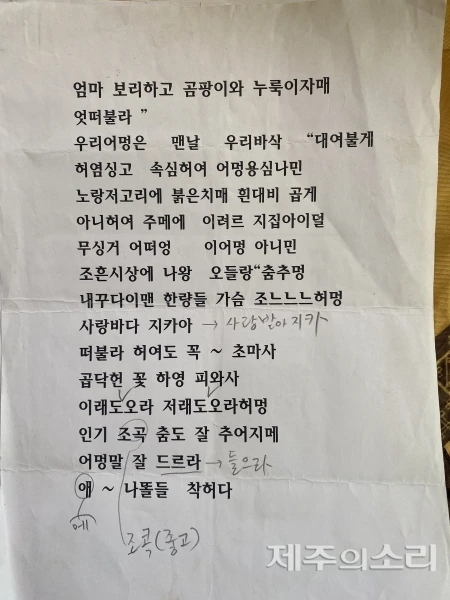 엄마 보리하고 곰팡이와 누룩이자매
엇떠불라 ”
우리어멍은 맨날 우리바삭 “대여불게
허염싱고 속심허여 어멍용심나민
노랑저고리에 붉은치매 휜대비 곱게
아니허여 주메에 이려르 지집아이덜
무싱거 어떠엉 이어멍 아니민
조흔시상에 나왕 오들랑“춤추멍
내꾸다이맨 한량들 가슴 조느느느허멍
사랑바다 지카아 → 사랑받아지카
떠불라 허여도 꼭 ~ 초마사
곱닥헌 꽃 하영 피와사
이래도오라 저래도오라허멍
인기 조곡 춤도 잘 추어지메
어멍말 잘 드르라 → 들으라
애 ~ 나똘들 착허다
에
조콕(좋고)
제주의소리